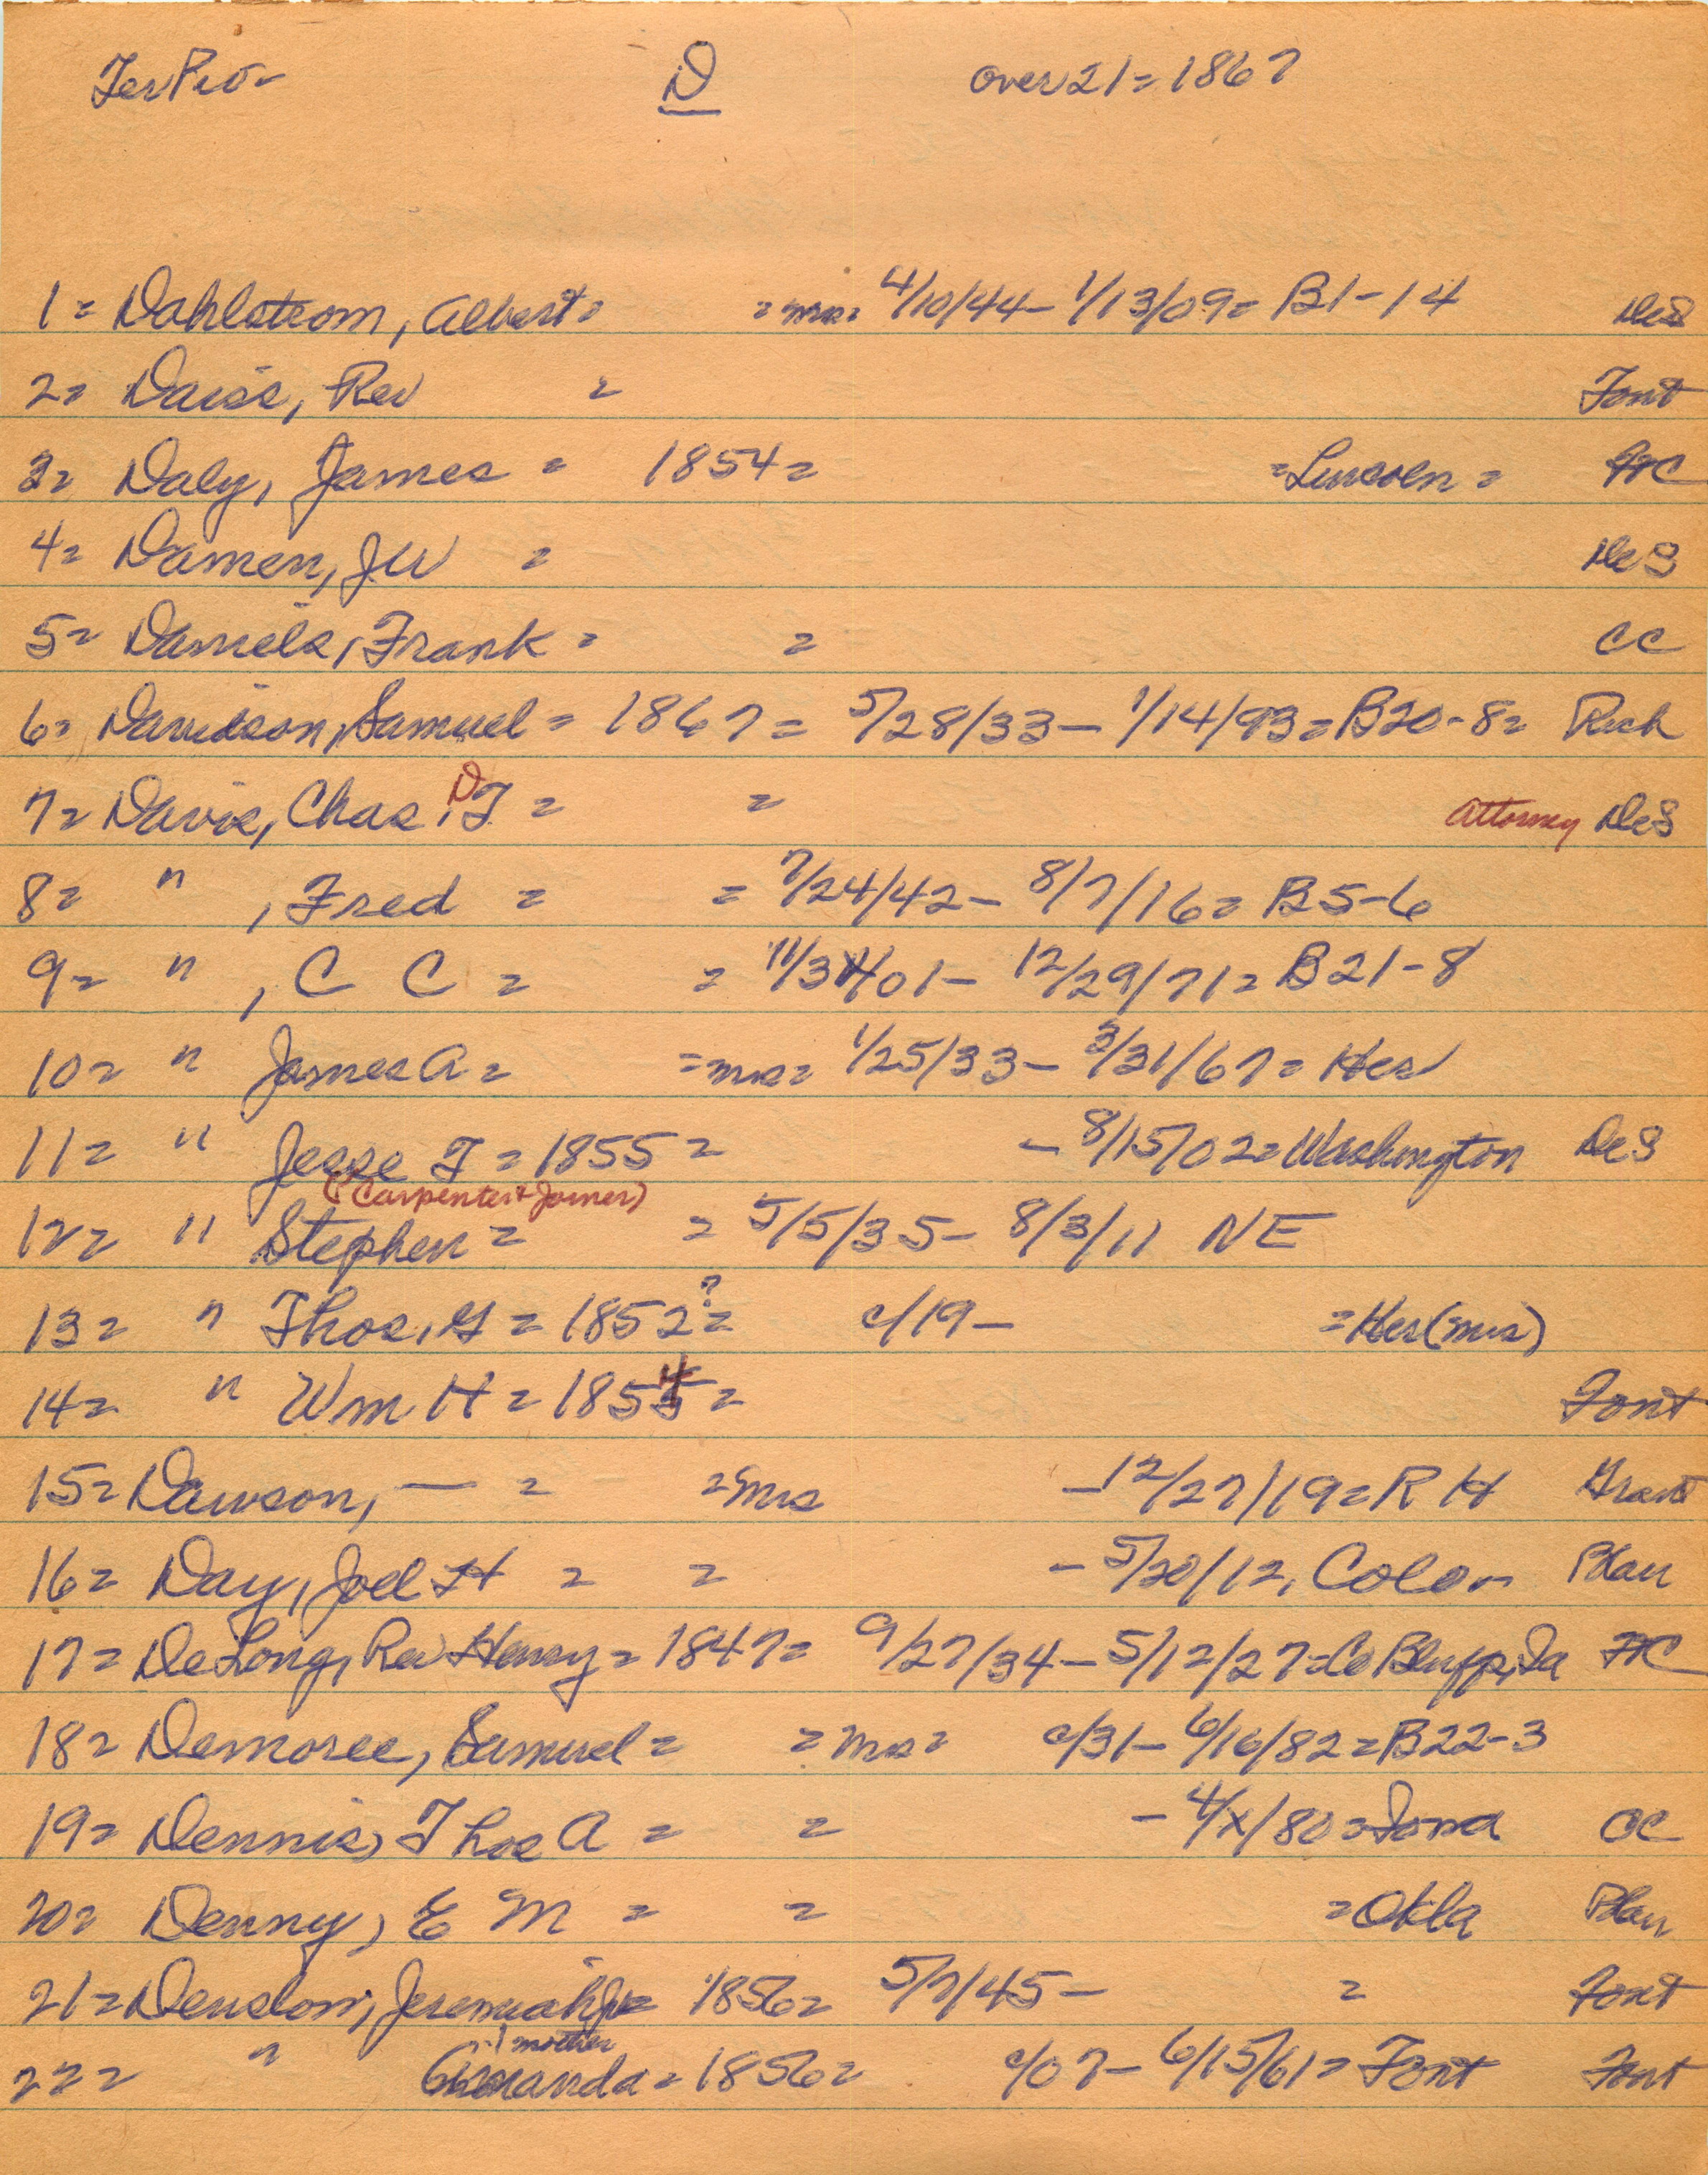 Ter Pio= D over 21=1867
1= Dahlstrom, Albert= =mrs= 4/10/44- 1/13/09= B1-14 DeS
2= Daiss, Rev = Font
3= Daly, James = 1854= =Lincoln= FtC
4= Damen, JW = DeS
5= Daniels, Frank = = CC
6= Davidson, Samuel = 1867 = 5/28/33- 1/14/93=B20-8= Rich
7= Davis, Chas. D T = = Attorney DeS
8= " , Fred = = 7/24/42- 8/7/16= B5-6
9= " , C C = = 01- 12/29/71= B21-8
10= " James A = =mrs= 1/25/33- 3/31/67= Her
11= " Jesse T = 1855 = - 8/15/02=Washington DeS
(Carpenter & Joiner)
12= " Stephen = = 5/5/35- 8/3/11 NE
13= " Thos. G = 1852?= c/19- =Her(mrs)
14= " Wm H = 1854 = Font
15= Dawson, — = =mrs -12/27/19=R H Grant
16= Day, Joel H = = -5/20/12, Colo- Blair
17= DeLong, Rev Henry = 1847= 9/27/34-5/12/27=Co Bluffs, Ia FtC
18= Demoree, Samuel = =mrs= c/31- 6/16/82=B22-3
19= Dennis, Thos A = = - 4/x/80=Iowa CC
20= Denny, E M = = =Okla Blair
21=Denslow, Jeremiah Jr= 1856= 5/7/45- = Font
mother
22= " = 1856= c/07- 6/15/61= Font Font